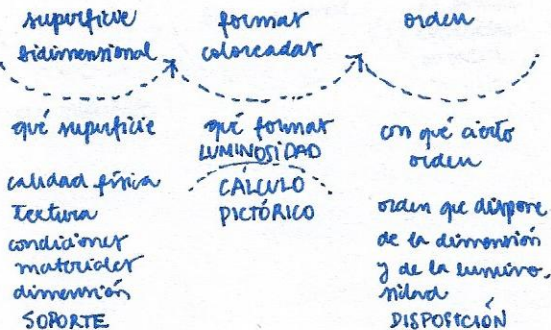 superficie
bidimensional
formas
coloreadas
orden
qué superficie
calidad física
textura
condiciones
materiales
dimensión
SOPORTE
qué formas
LUMINOSIDAD
CÁLCULO
PICTÓRICO
con qué cierto
orden
orden que dispone
de la dimensión
y de la lumino-
sidad
DISPOSICIÓN